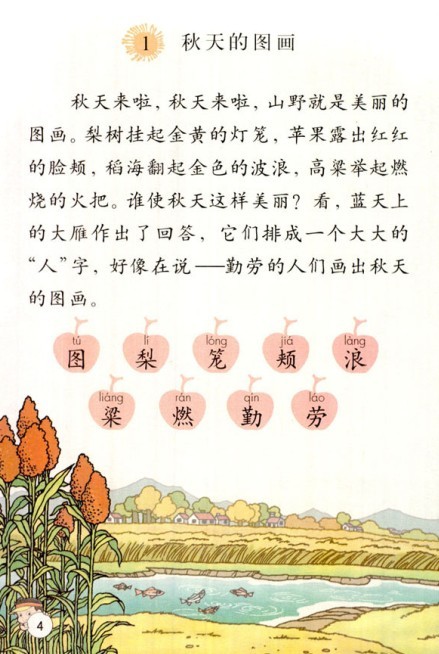 1 秋天的图画
秋天来啦，秋天来啦，山野就是美丽的
图画。梨树挂起金黄的灯笼，苹果露出红红
的脸颊，稻海翻起金色的波浪，高粱举起燃
烧的火把。谁使秋天这样美丽？看，蓝天上
的大雁作出了回答，它们排成一个大大的
“人”字，好像在说——勤劳的人们画出秋天
的图画。
tú lí lóng jiá làng
图 梨 笼 颊 浪
liáng rán qín láo
梁 燃 勤 劳
4